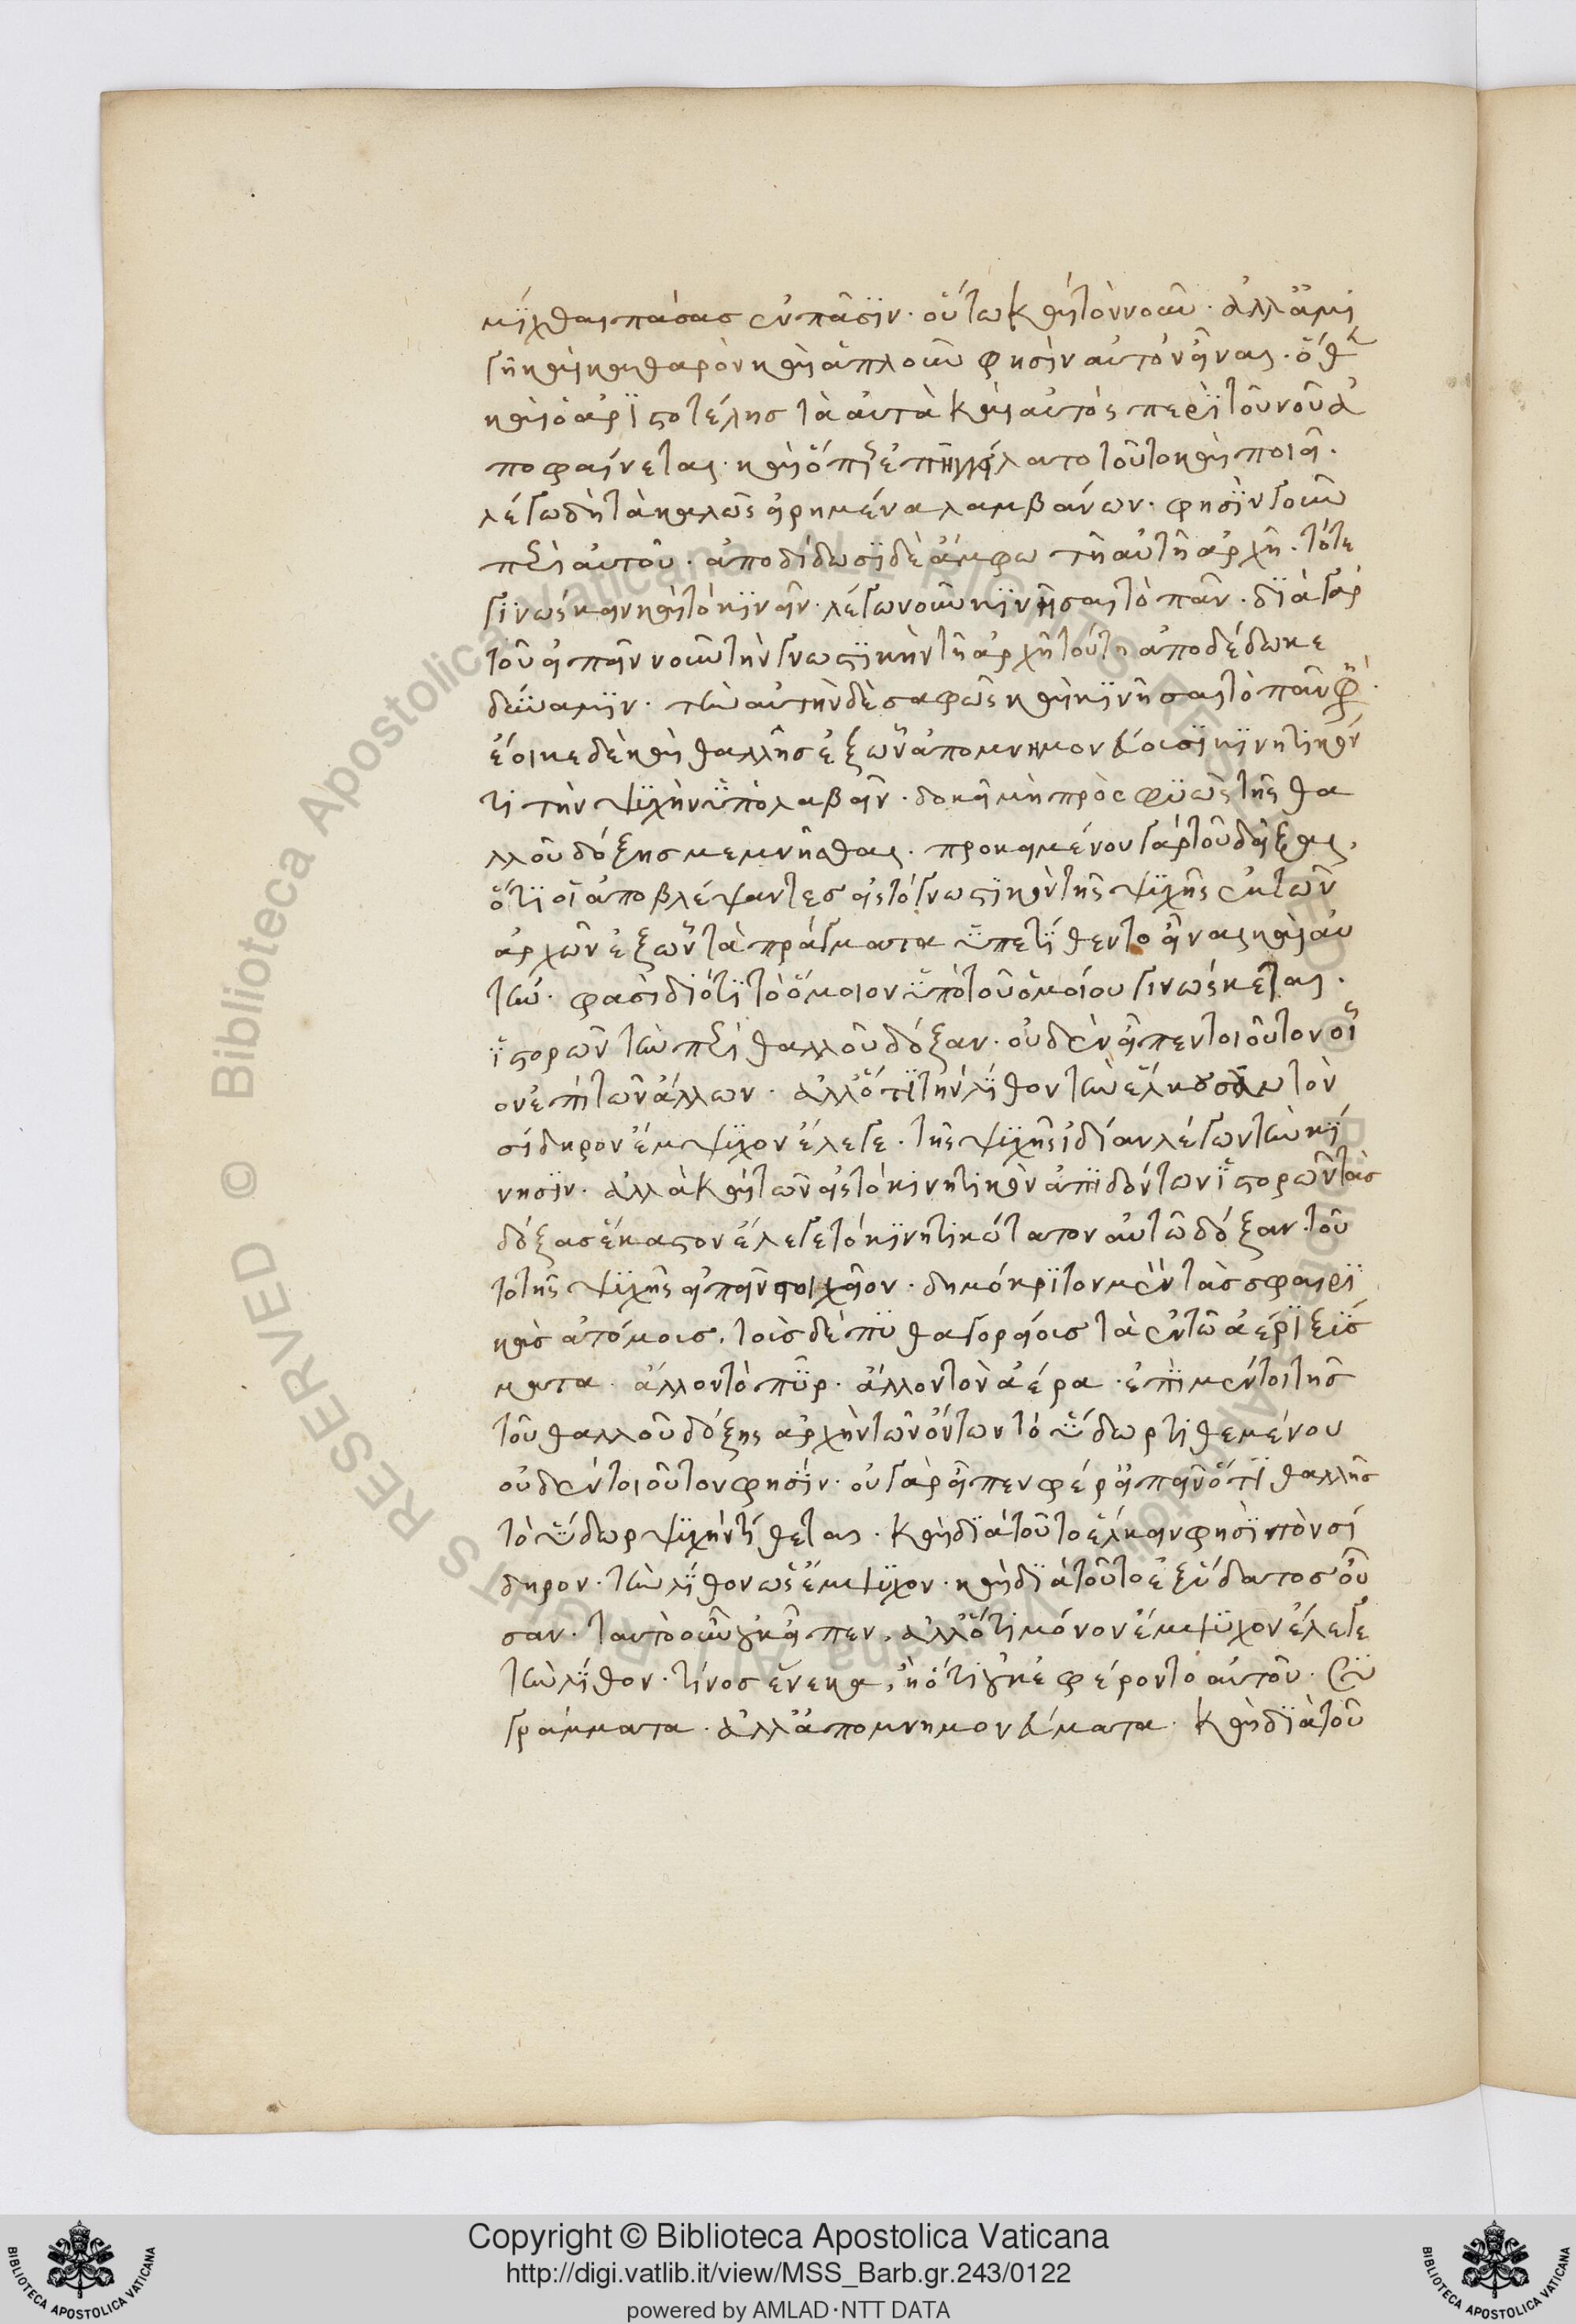 μίχθαι πάσας ἐν πᾶσιν. οὕτω καὶ τὸν νοῦν. ἀλλ' ἀμι
γῆ καὶ καθαρὸν καὶ ἁπλοῦν φησὶν αὐτὸν εἶναι. ὅθεν
καὶ ὁ ἀριστοτέλης τὰ αὐτὰ καὶ αὐτὸς περὶ τοῦ νοῦ ἀ
ποφαίνεται. καὶ ὅπερ ἐπηγγείλατο τοῦτο καὶ ποιεῖ.
λέγω δὴ τὰ καλῶς εἰρημένα λαμβάνων. φησὶν γοῦν
περὶ αὐτοῦ. ἀποδίδωσι δὲ ἄμφω τῇ αὐτῇ ἀρχῇ. τό τε
γινώσκειν καὶ τὸ κινεῖν. λέγων νοῦν κινῆσαι τὸ πᾶν. διὰ γὰρ
τοῦ εἰπεῖν νοῦν τὴν γνωστικὴν τῇ ἀρχῇ ταύτῃ ἀποδέδωκε
δύναμιν. τὴν αὐτὴν δὲ σαφῶς καὶ κινῆσαι τὸ πᾶν φησί.
ἔοικε δὲ καὶ θαλλῆς ἐξ ὧν ἀπομνημονεύουσι κινητικόν
τι τὴν ψυχὴν ὑπολαβεῖν. δοκεῖ μὴ προσφυῶς τῆς θα
λλοῦ δόξης μεμνῆσθαι. προκειμένου γὰρ τοῦ δεῖξαι,
ὅτι οἱ ἀποβλέψαντες εἰς τὸ γνωστικὸν τῆς ψυχῆς ἐκ τῶν
ἀρχῶν ἐξ ὧν τὰ πράγματα ὑπετίθεντο εἶναι καὶ αὐ
τήν. φασὶ διότι τὸ ὅμοιον ὑπὸ τοῦ ὁμοίου γινώσκεται.
ἱστορῶν τὴν περὶ θαλλοῦ δόξαν. οὐδὲν εἶπεν τοιοῦτον οἷ
ον ἐπὶ τῶν ἄλλων. ἀλλ' ὅτι τὴν λίθον τὴν ἕλκουσαν τὸν
σίδηρον ἔμψυχον ἔλεγε. τῆς ψυχῆς ἰδίαν λέγων τὴν κί
νησιν. ἀλλὰ καὶ τῶν εἰς τὸ κινητικὸν ἀπιδόντων ἱστορῶν τὰς
δόξας ἕκαστον ἔλεγε τὸ κινητικώτατον αὐτῶ δόξαν. τοῦ
το τῆς ψυχῆς εἰπεῖν στοιχεῖον. δημόκριτον μὲν τὰς σφαιρι
κὰς ἀτόμοις. τοῖς δὲ πυθαγορείοις τὰ ἐν τῶ ἀέρι ξύς
ματα. ἄλλον τὸ πῦρ. ἄλλον τὸν ἀέρα. ἐπὶ μέντοι τῆς
τοῦ θαλλοῦ δόξης ἀρχὴν τῶν ὄντων τὸ ὕδωρ τιθεμένου
οὐδὲν τοιοῦτον φησίν. οὐ γὰρ εἶπεν φέρ' εἰπεῖν ὅτι θαλλῆς
τὸ ὕδωρ ψυχὴν τίθεται. καὶ διὰ τοῦτο ἕλκειν φησὶ τὸν σί
δηρον. τὴν λίθον ὡς ἔμψυχον. καὶ διὰ τοῦτο ἐξ ὕδατος οὖ
σαν. ταυτὸ οὖν οὐκ εἶπεν. ἀλλ' ὅτι μόνον ἔμψυχον ἔλεγε
τὴν λίθον. τίνος ἕνεκα, ἢ ὅτι οὐκ ἐφέροντο αὐτοῦ. συ
γράμματα. ἀλλ' ἀπομνημονεύματα. καὶ διὰ τοῦ
Copyright © Biblioteca Apostolica Vaticana
http://digi.vatlib.it/view/MSS_Barb.gr.243/0122
powered by AMLAD·NTT DATA